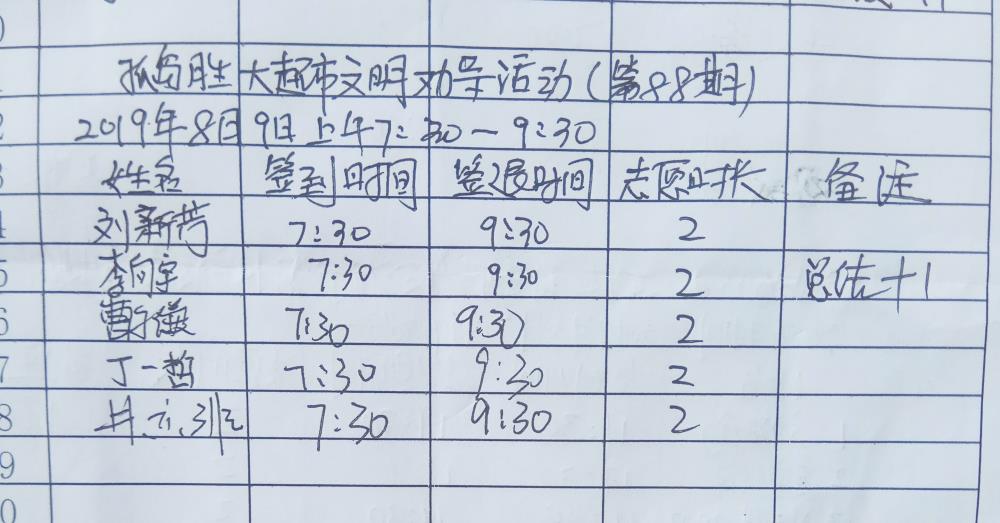 孤岛胜大超市文明劝导活动(第88期)
2019年8月9日上午7:30-9:30
姓名 签到时间 签退时间 志愿时长 备注
刘新芳 7:30 9:30 2
李向宇 7:30 9:30 2 总结+1
7:30 9:30 2
丁一哲 7:30 9:30 2
7:30 9:30 2